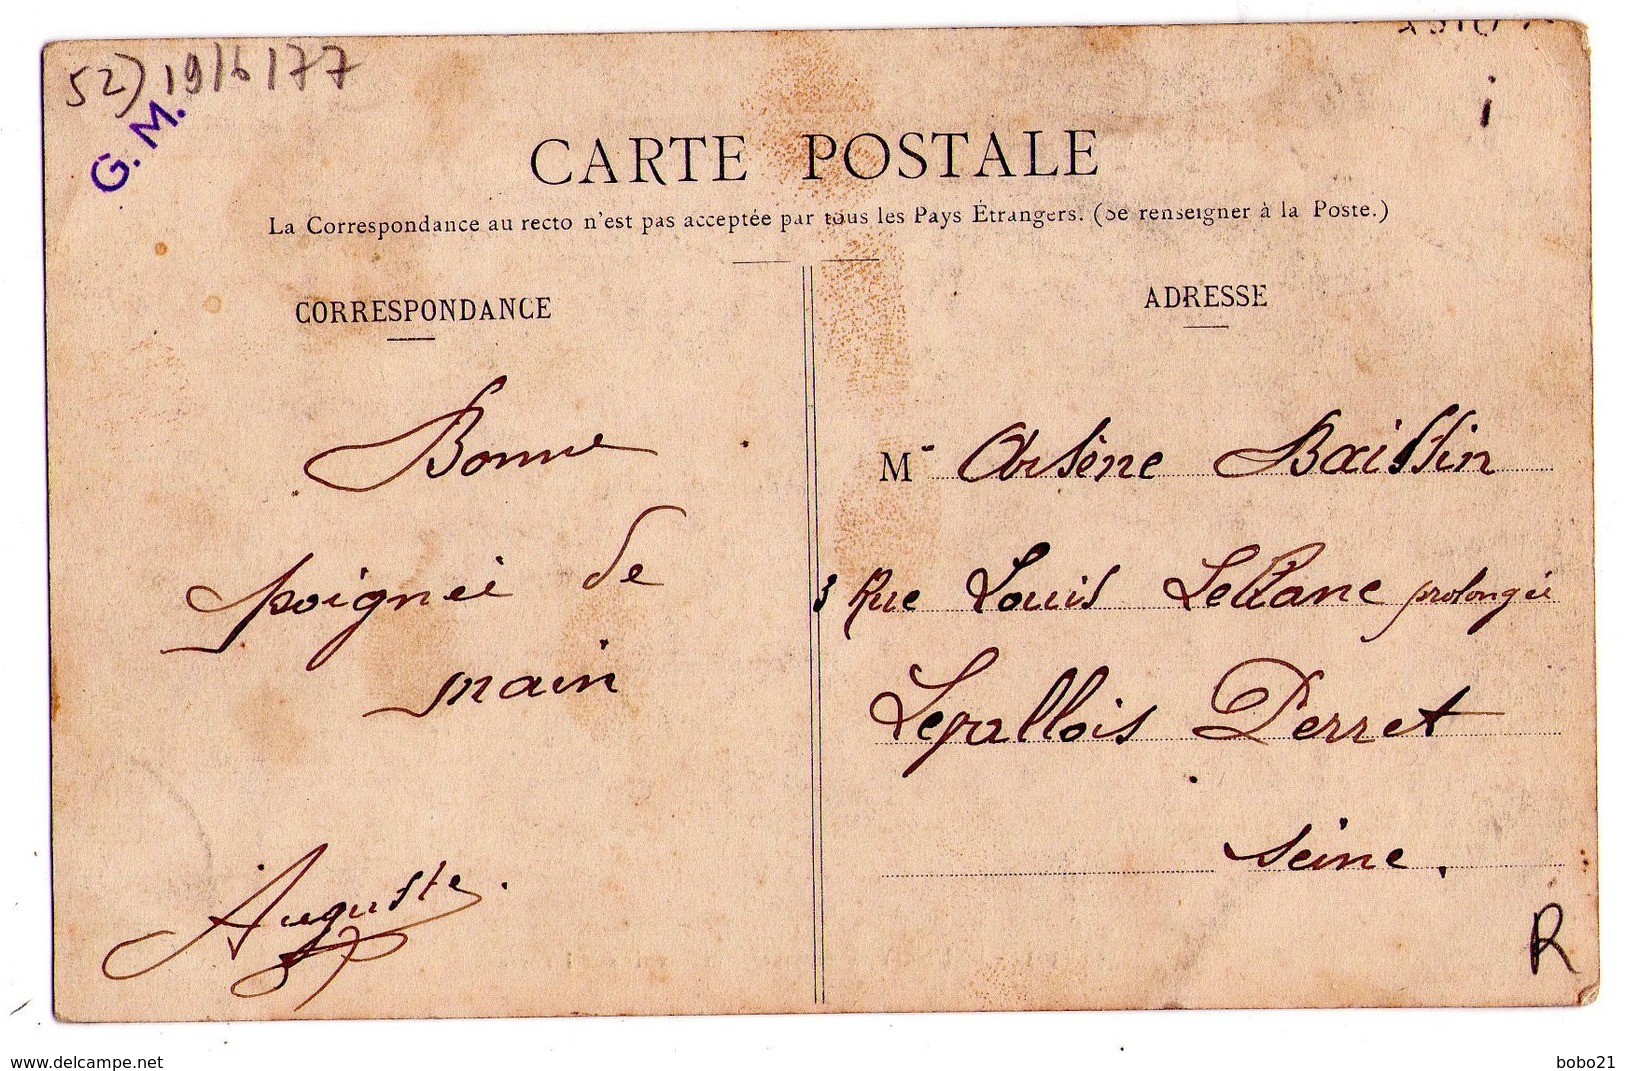 52) 19/6/77
G. M.
i
CARTE POSTALE
La Correspondance au recto n'est pas acceptée par tous les Pays Étrangers. (Se renseigner à la Poste.)
CORRESPONDANCE
Bonne
poignée de
main
Auguste.
ADRESSE
M Arsène Baissin
3 Rue Louis Leblanc prolongée
Levallois Perret
Seine.
R
www.delcampe.net
bobo21